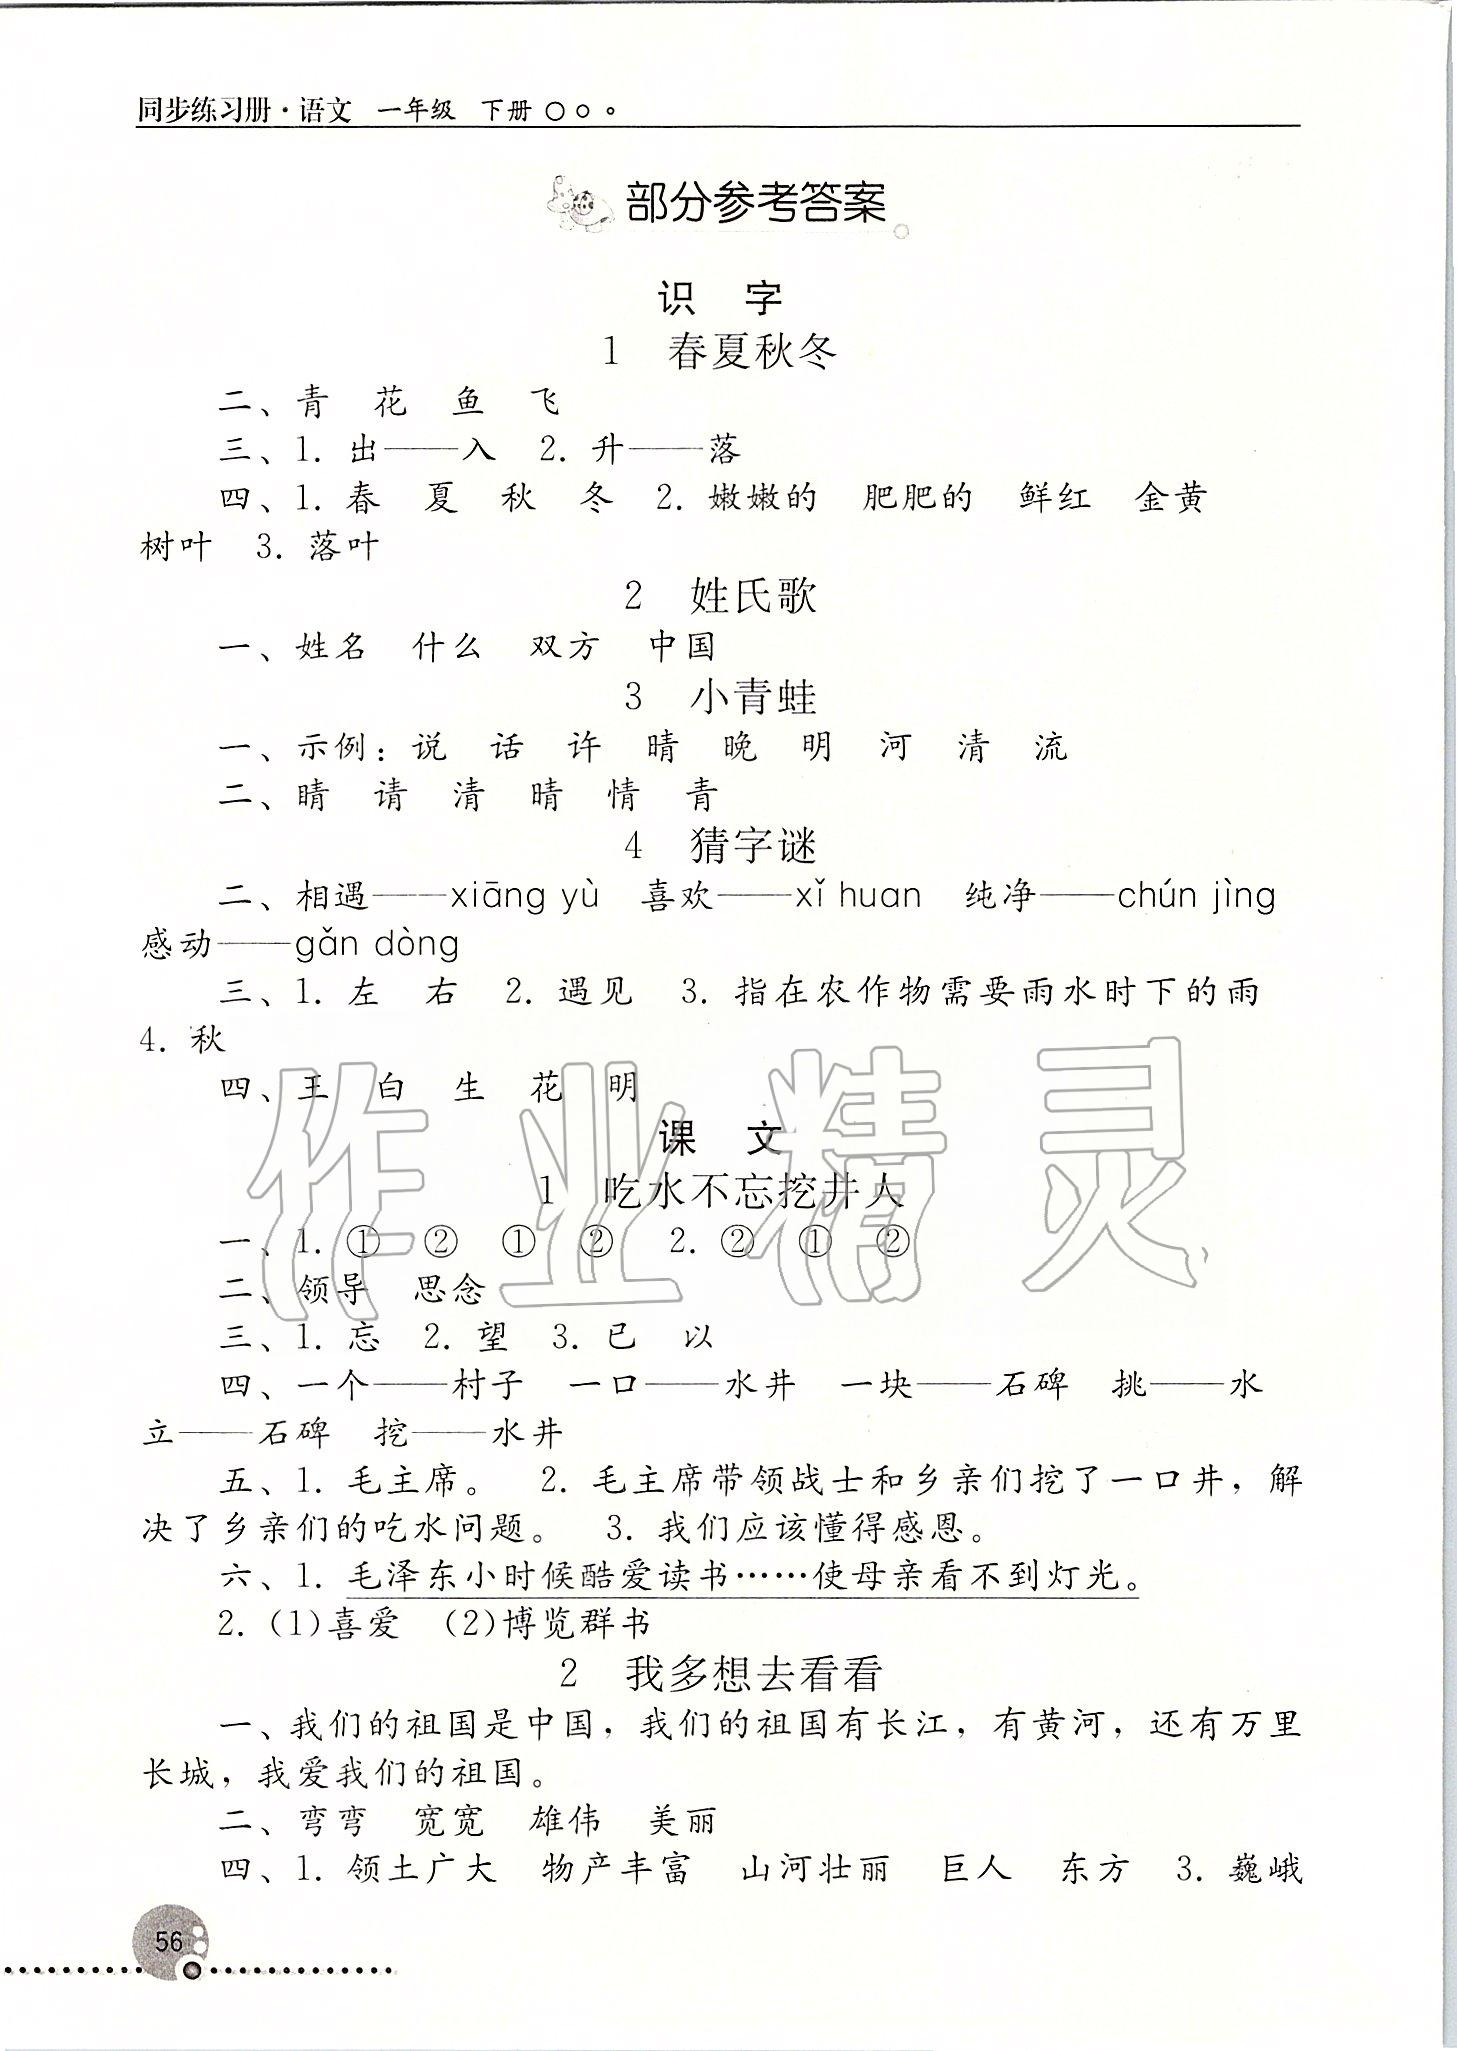 同步练习册·语文 一年级 下册
部分参考答案
识 字
1 春夏秋冬
二、青 花 鱼 飞
三、1. 出——入 2. 升——落
四、1. 春 夏 秋 冬 2. 嫩嫩的 肥肥的 鲜红 金黄
树叶 3. 落叶
2 姓氏歌
一、姓名 什么 双方 中国
3 小青蛙
一、示例:说 话 许 晴 晚 明 河 清 流
二、睛 请 清 晴 情 青
4 猜字谜
二、相遇——xiāng yù 喜欢——xǐ huan 纯净——chún jìng
感动——gǎn dòng
三、1. 左 右 2. 遇见 3. 指在农作物需要雨水时下的雨
4. 秋
四、王 白 生 花 明
课 文
1 吃水不忘挖井人
一、1. ① ② ① ② 2. ② ① ②
二、领导 思念
三、1. 忘 2. 望 3. 已 以
四、一个——村子 一口——水井 一块——石碑 挑——水
立——石碑 挖——水井
五、1. 毛主席。 2. 毛主席带领战士和乡亲们挖了一口井，解
决了乡亲们的吃水问题。 3. 我们应该懂得感恩。
六、1. 毛泽东小时候酷爱读书……使母亲看不到灯光。
2. (1)喜爱 (2)博览群书
2 我多想去看看
一、我们的祖国是中国，我们的祖国有长江，有黄河，还有万里
长城，我爱我们的祖国。
二、弯弯 宽宽 雄伟 美丽
四、1. 领土广大 物产丰富 山河壮丽 巨人 东方 3. 巍峨
56
作业精灵